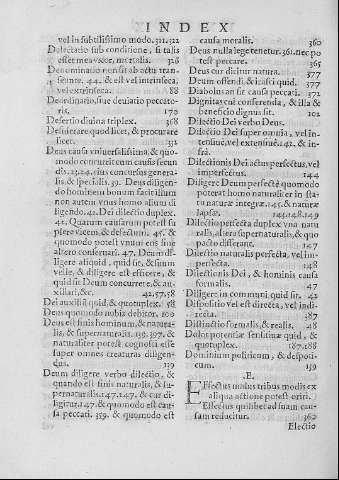 INDEX
vel in subtilissimo modo. 311.312
Delectatio sub conditione, si talis
esset meavxor, mortalis. 328
Denominatio non sit ab actu tran
seunte. 44. & est intrinseca,
vel extrinseca. 88
Deordinatio, siue deuiatio peccato-
ris. 170
Desertio diuina triplex. 358
Desiderare quod licet, & procurare
licet. 331
Deus causa vniuersalissimo, & quo-
modo concurrit cum causis secun
dis. 23.24. eius concursus genera-
lis & specialis. 93. Deus diligen-
do hominem bonum supistallium
non autem vnus homo alium di
ligendo. 42. Dei dilectio duplex.
42. Quarum causarum potest su
plere vicem, & defectum. 45. &
quomodo potest vnum ens sine
altero conseruari. 47. Deum di-
ligere aliquid, quid sit, & simul
velle, & diligere est efficere, &
quid sit Deum concurrere, & au-
xiliari, &c. 42.57.58
Dei auxiliū quid, & quotuplex. 58
Deus quomodo nobis debitor. 100
Deus est finis hominum, & natura-
lis, & supernaturalis. 139.397. &
naturaliter potest cognosci esse
super omnes creaturas diligen-
dus. 139
Deum diligere verbo dilectio, &
quando est finis naturalis, & su-
pernaturalis. 147.147. & cur di-
ligitur. 147. & quomodo est cau
sa peccati. 359. & quomodo est
causa moralis. 360
Deus nulla lege tenetur. 361. nec po
test peccare. 365
Deus cur dicitur natura. 377
Deum offendi, & irasci quid. 377
Diabolus an sit causa peccati. 372
Dignitas cui conferenda, & illa &
beneficio dignus sit. 102
Dilectio Dei verbo Deus.
Dilectio Dei super omnia, vel in-
tensiuè, vel extensiuè. 142. & in-
frà.
Dilectionis Dei actus perfectus, vel
imperfectus. 144
Diligere Deum perfectè quomodo
poterat homo naturaliter in sta-
tu naturæ integræ. 145. & naturæ
lapsæ. 144.148.149
Dilectio perfecta duplex vna natu
ralis, altera supernaturalis, & quo
pacto differant. 147
Dilectio naturalis perfecta, vel im-
perfecta. 148
Dilectionis Dei, & hominis causa
formalis. 47
Diligere in communi quid sit. 42
Dispositio vel est directa, vel indi-
recta. 387
Distinctio formalis, & realis. 28
Dolor potentiæ sensitiuæ quid, &
quotuplex. 187.188
Dominium politicum, & despoti-
cum. 159
.E.
Effectus vnibus tribus modis ex
aliqua actione potest oriri.
Effectus quilibet ad suam cau-
sam reducitur. 360
Electio